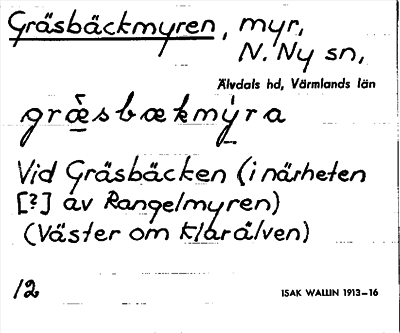 Gräsbäckmyren, myr,
N. Ny sn,
Älvdals hd, Värmlands län
græ̀sbækmỳra
Vid Gräsbäcken (i närheten
[?] av Rangelmyren)
(Väster om Klarälven)
12
ISAK WALLIN 1913–16